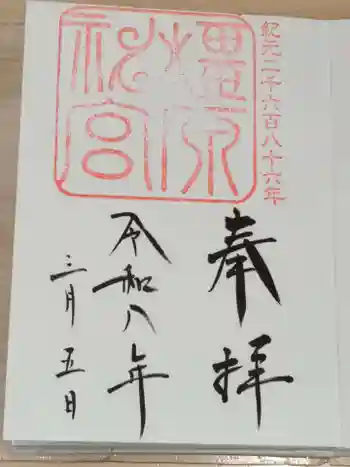 紀元二千六百八十六年
橿原
神宮
奉拝
令和八年
三月五日